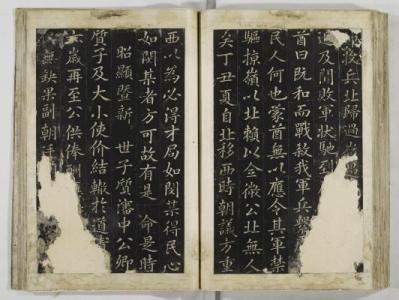 兵北歸過
道及閔敗軍狀馳到
酋曰既和而戰殺我軍兵繫
民人何也蒙酋無以應令其軍禁
驅掠嶺以北賴以全微公北無人
矣丁丑夏自北移西時朝議方重
西以為必得才局如閔某得民心
如閔某者方可故有是 命是時
昭顯曁新 世子質瀋中公卿
質子及大小使价結轍於道
歲再至公供俸酬
無缺果副朝